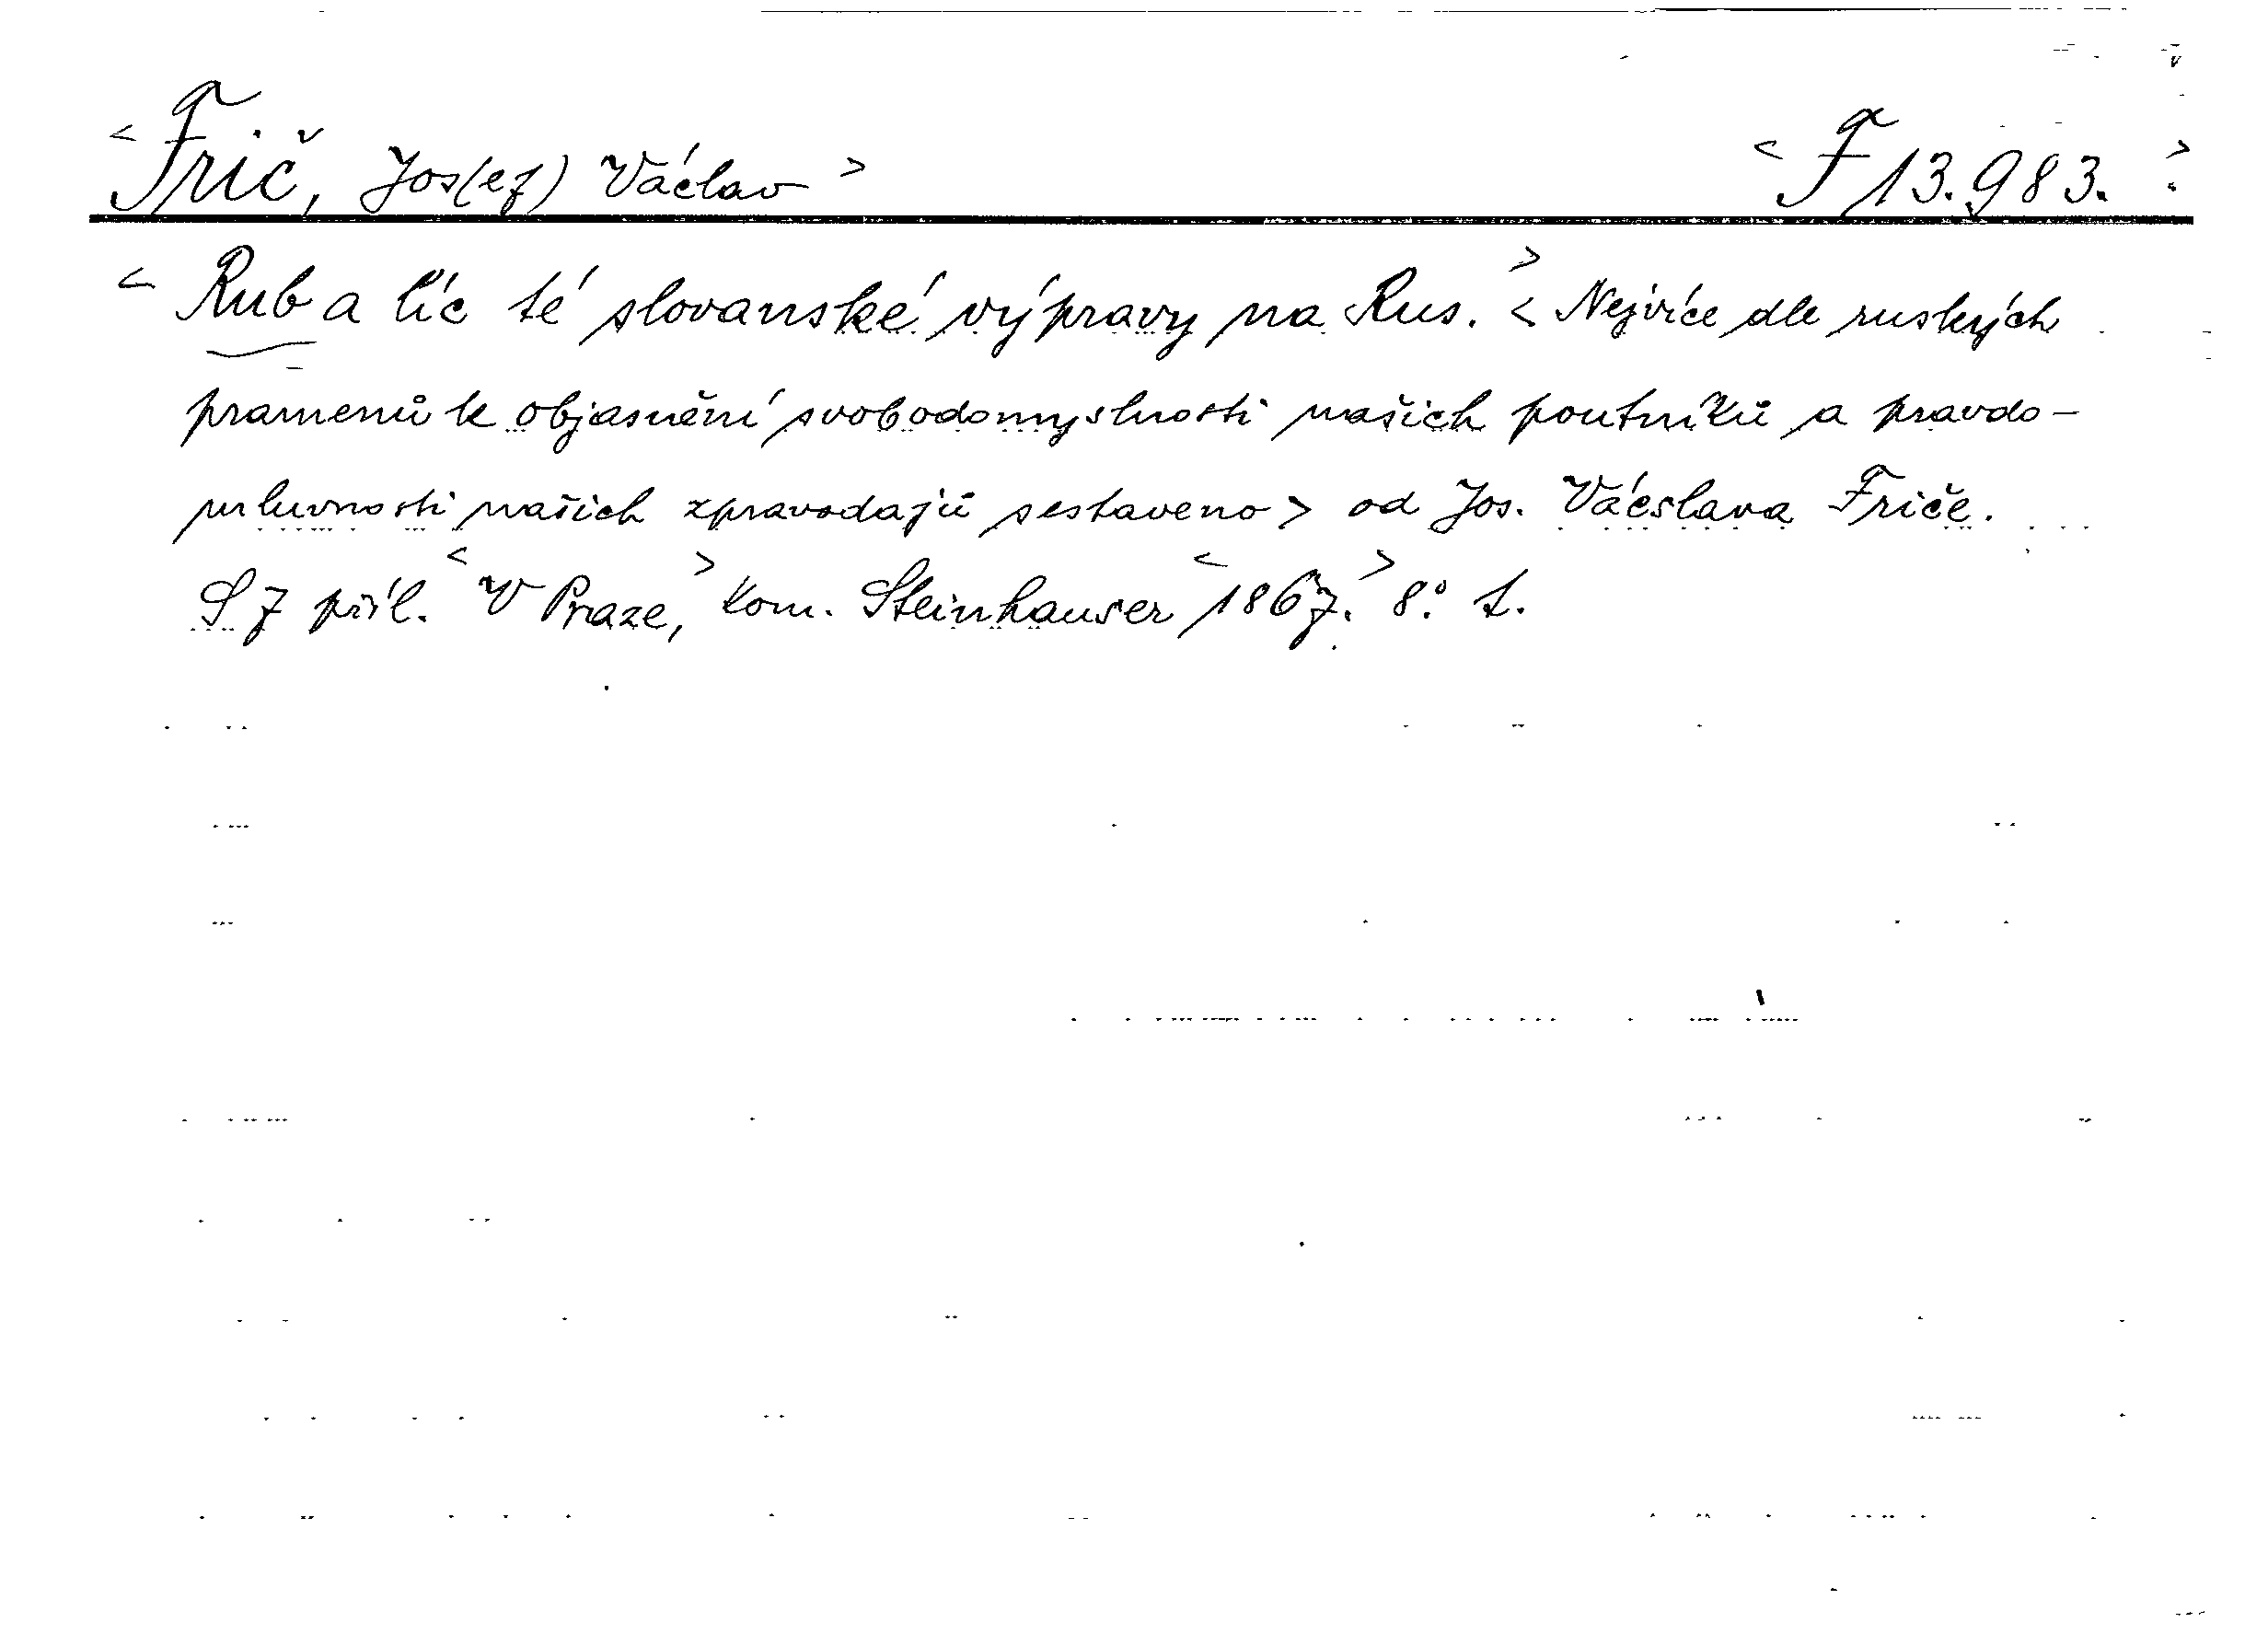 < Frič, Jos(ef) Václav > < F 13.983. >
< Rub a líc té slovanské výpravy na Rus. > < Nejvíce dle ruských
pramenů k objasnění svobodomyslnosti našich poutníků a pravdo-
mluvnosti našich zpravodajů sestaveno > od Jos. Václslava Friče.
S 7 příl. < V Praze, > kom. Steinhauser < 1867. > 8°. 1.